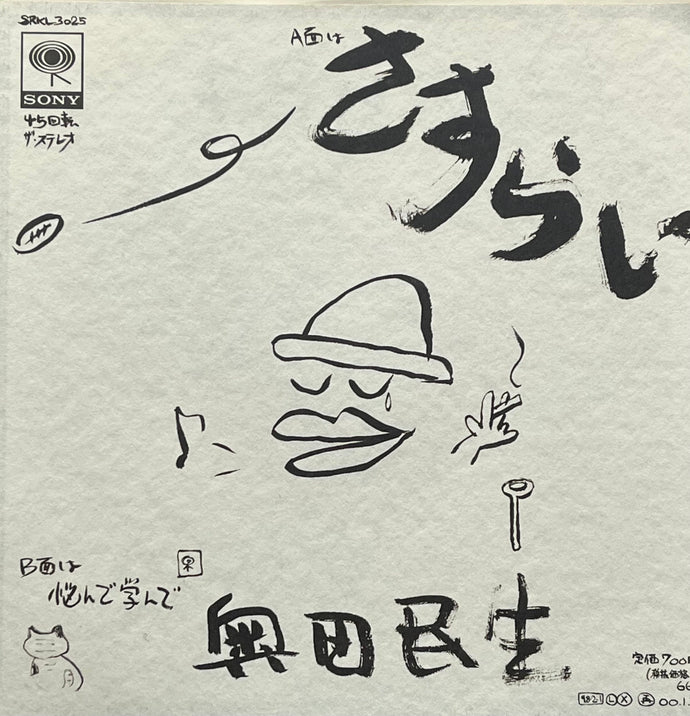 SRKL3025
SONY
45回転
ザ・ステレオ
A面は
さすらい
B面は
悩んで学んで
奥田民生
定価700
(税抜価格
66
9821 L X 再 00.1.